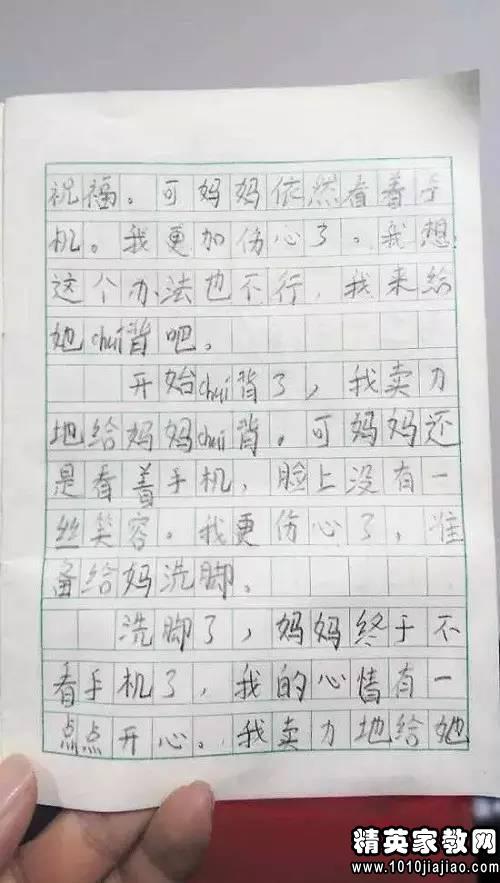 祝福。可妈妈依然看着手
机。我更加伤心了。我想
这个办法也不行，我来给
她chui背吧。
开始chui背了，我卖力
地给妈妈chui背。可妈妈还
是看着手机，脸上没有一
丝笑容。我更伤心了，准
备给妈洗脚。
洗脚了，妈妈终于不
看手机了，我的心情有一
点点开心。我卖力地给她
精英家教网
www.1010jiajiao.com